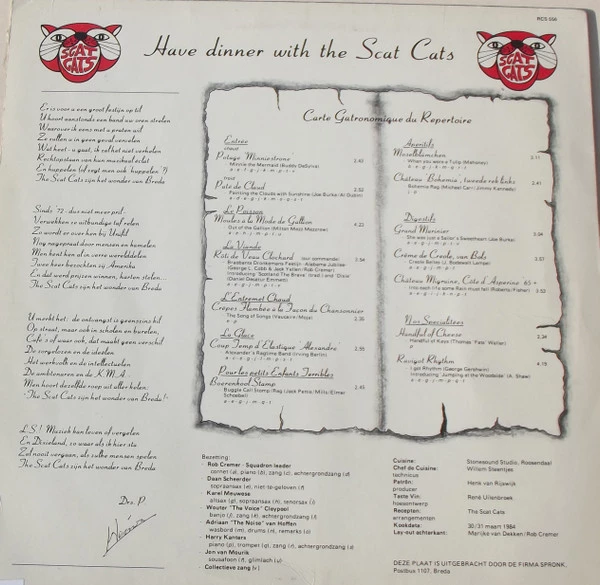 RCS 558
SCAT CATS
Have dinner with the Scat Cats
SCAT CATS
Er is voor u een groot festijn op til
U hoort aanstonds een band uw oren strelen
Waarover ik eens met u praten wil
Ze zullen u in geen geval vervelen
Wat heet: u gaat, ik zal het niet verhelen
Rechtopstaan van hun muzikaal éclat
En huppelen (of zegt men ook 'happelen'?)
The Scat Cats zijn het wonder van Breda
Sinds '72 - dus niet meer pril -
Verwekken ze uitbundige taferelen
Zo wordt er over hen bij
Nog nagepraat door mensen en kamelen
Men kent hen al in verre werelddelen
Twee keer bezochten zij Amerika
En dat werd prijzen winnen, harten stelen...
The Scat Cats zijn het wonder van Breda
U merkt het: de ontvangst is geenszins kil
Op straat, maar ook in scholen en burelen,
Café's of waar ook, dat maakt geen verschil
De zorgelozen en de ideëlen
Het werkvolk en de intellectuelen
De ambtenaren en de K.M.A.-
Men hoort dezelfde roep uit aller kelen:
'The Scat Cats zijn het wonder van Breda!'-
L.S.! Muziek kan leven of vergelen
En Dixieland, zo waar als ik hier sta
Zal nooit vergaan, als zulke mensen spelen
The Scat Cats zijn het wonder van Breda
Drs. P
Carte Gatronomique du Repertoire
Entrée
chaud
Potage Minniestrone 2.43
Minnie the Mermaid (Buddy DeSylva)
froid
Paté de Cloud 2.52
Painting the Clouds with Sunshine (Joe Burke/Al Dubin)
Le Poisson
Moules à la Mode de Gallion 4.22
Out of the Gallion (Milton Mezz Mezzrow)
La Viande
Rôti de Veau Clochard (sur commande)
Brabants Dronkemans Feestje - Alabama Jubilee
(George L. Cobb & Jack Yellen/Rob Cremer)
Introducing 'Scotland The Brave' (trad.) and 'Dixie'
(Daniel Decatur Emmett)
L'Entremet Chaud
Crêpes Flambée à la Façon du Chansonnier
The Song of Songs (Vaucaire/Moya)
La Glace
Coup Temp d'Elastique 'Alexandre'
Alexander's Ragtime Band (Irving Berlin)
Pour les petits Enfants Terribles
Boerenkool Stamp
Buggle Call Stomp/Rag (Jack Pettis/Mills/Elmer
Schoebel)
Aperitifs
Moselblümchen 2.11
When you wore a Tulip (Mahoney)
Château 'Bohemia', tweede rek links 2.41
Bohemia Rag (Michael Carr/Jimmy Kennedy)
Digestifs
Grand Marinier
She was just a Sailor's Sweetheart (Joe Burke)
Crème de Creole, van Bols
Creole Belles (J. Bodewalt Lampe)
Château Migraine, Côte d'Asperine 65+
Into each life some Rain must fall (Roberts/Fisher)
Nos Specialitées
Handful of Cheese
Handful of Keys (Thomas 'Fats' Waller)
Ravigot Rhythm 4.15
I got Rhythm (George Gershwin)
Introducing 'Jumping at the Woodside' (A. Shaw)
Bezetting:
- Rob Cremer - Squadron leader
cornet (c), piano (p), zang (z), achtergrondzang (a)
- Daan Scheerder
sopraansax (e), niet-te-geloven (f)
- Karel Meuwese
altsax (g), sopraansax (h), tenorsax (i)
- Wouter "The Voice" Claypool
banjo (j), zang (k), achtergrondzang (l)
- Adriaan "The Noise" van Hoften
wasbord (m), drums (n), remarks (o)
- Harry Kanters
piano (p), trompet (q), zang (r), achtergrondzang (s)
- Jon van Mourik
sousafoon (t), glimlach (u)
- Collectieve zang (v)
Cuisine: Stonesound Studio, Roosendaal
Chef de Cuisine: Willem Steentjes
technicus
Patrôn: Henk van Rijswijk
producer
Teste Vin: René Uilenbroek
hoesontwerp
Recepten: The Scat Cats
arrangementen
Kookdata: 30/31 maart 1984
Lay-out achterkant: Marijke van Dekken/Rob Cremer
DEZE PLAAT IS UITGEBRACHT DOOR DE FIRMA SPRONK,
Postbus 1107, Breda